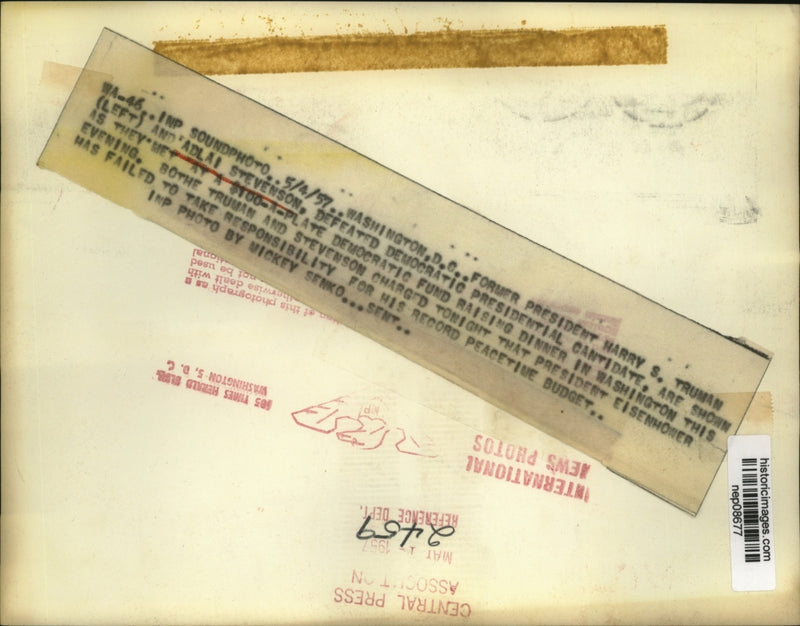 WA-46.. INP SOUNDPHOTO..5/4/57..WASHINGTON,D.C..FORMER PRESIDENT HARRY S. TRUMAN
(LEFT) AND ADLAI STEVENSON, DEFEATED DEMOCRATIC PRESIDENTIAL CANTIDATE, ARE SHOWN
AS THEY MET AT A $100-A-PLATE DEMOCRATIC FUND RAISING DINNER IN WASHINGTON THIS
EVENING. BOTHE TRUMAN AND STEVENSON CHARGED TONIGHT THAT PRESIDENT EISENHOWER
HAS FAILED TO TAKE RESPONSIBILITY FOR HIS RECORD PEACETIME BUDGET..
INP PHOTO BY MICKEY SENKO...SENT..
of this photograph as a
otherwise dealt with
not be used
TIMES HERALD BLDG.
WASHINGTON 5, D. C.
INTERNATIONAL
NEWS PHOTOS
REFERENCE DEPT.
2459
1957
CENTRAL PRESS
historicimages.com
nep08677